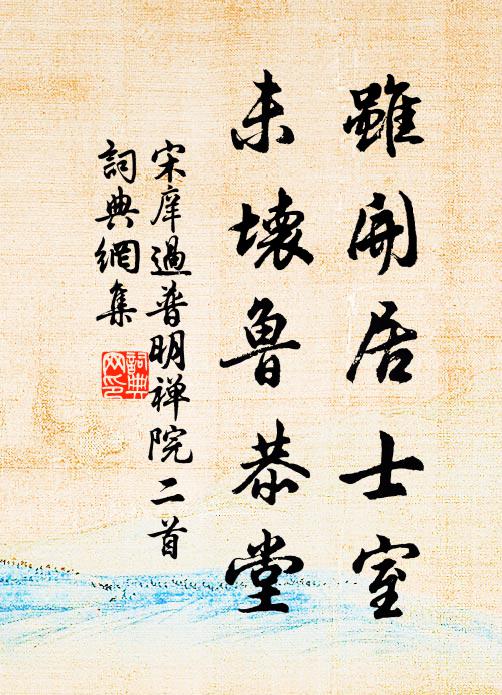 雖開居士室
未壞魯恭堂
宋庠過普明禅院二首
詞典網集
詞典网印